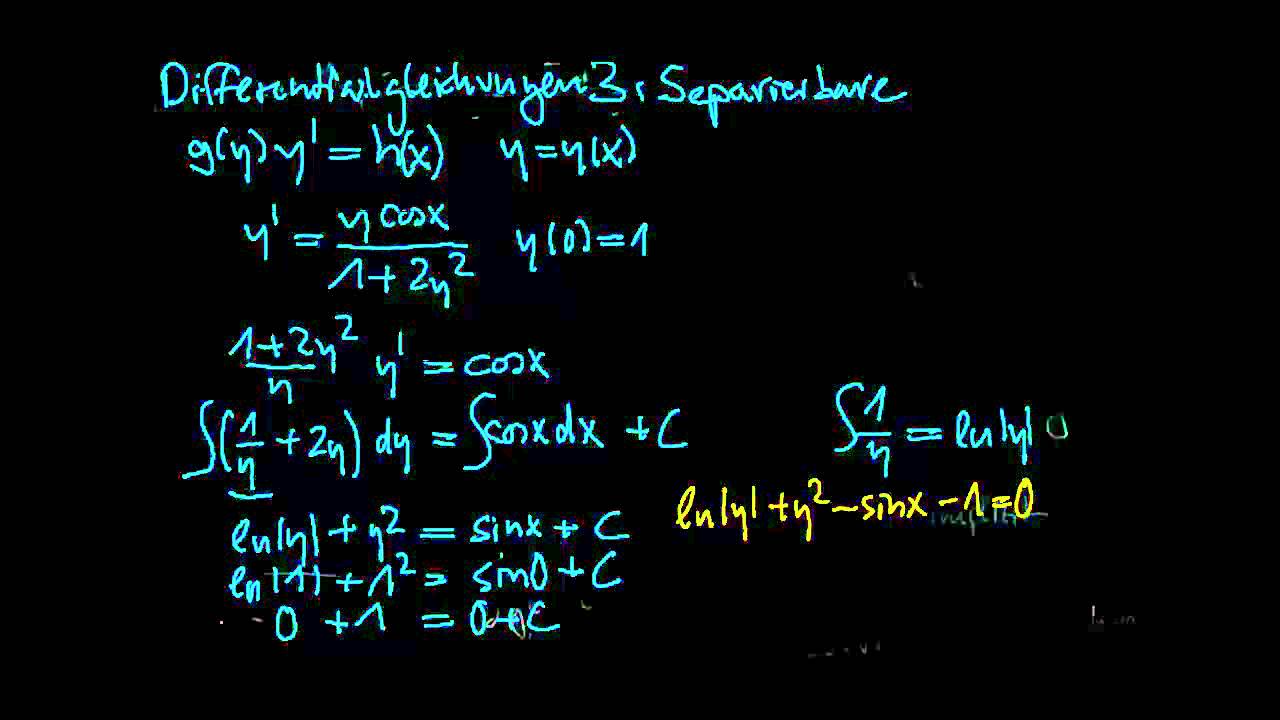 Differentialgleichungen 3: Separierbare
g(y) y' = h(x) y = y(x)
y' = y cosx / 1 + 2y² y(0) = 1
1 + 2y² / y y' = cosx
∫(1/y + 2y) dy = ∫cosx dx + C
∫ 1/y = ln|y|
ln|y| + y² - sinx - 1 = 0
ln|y| + y² = sinx + C
ln|1| + 1² = sin0 + C
0 + 1 = 0 + C